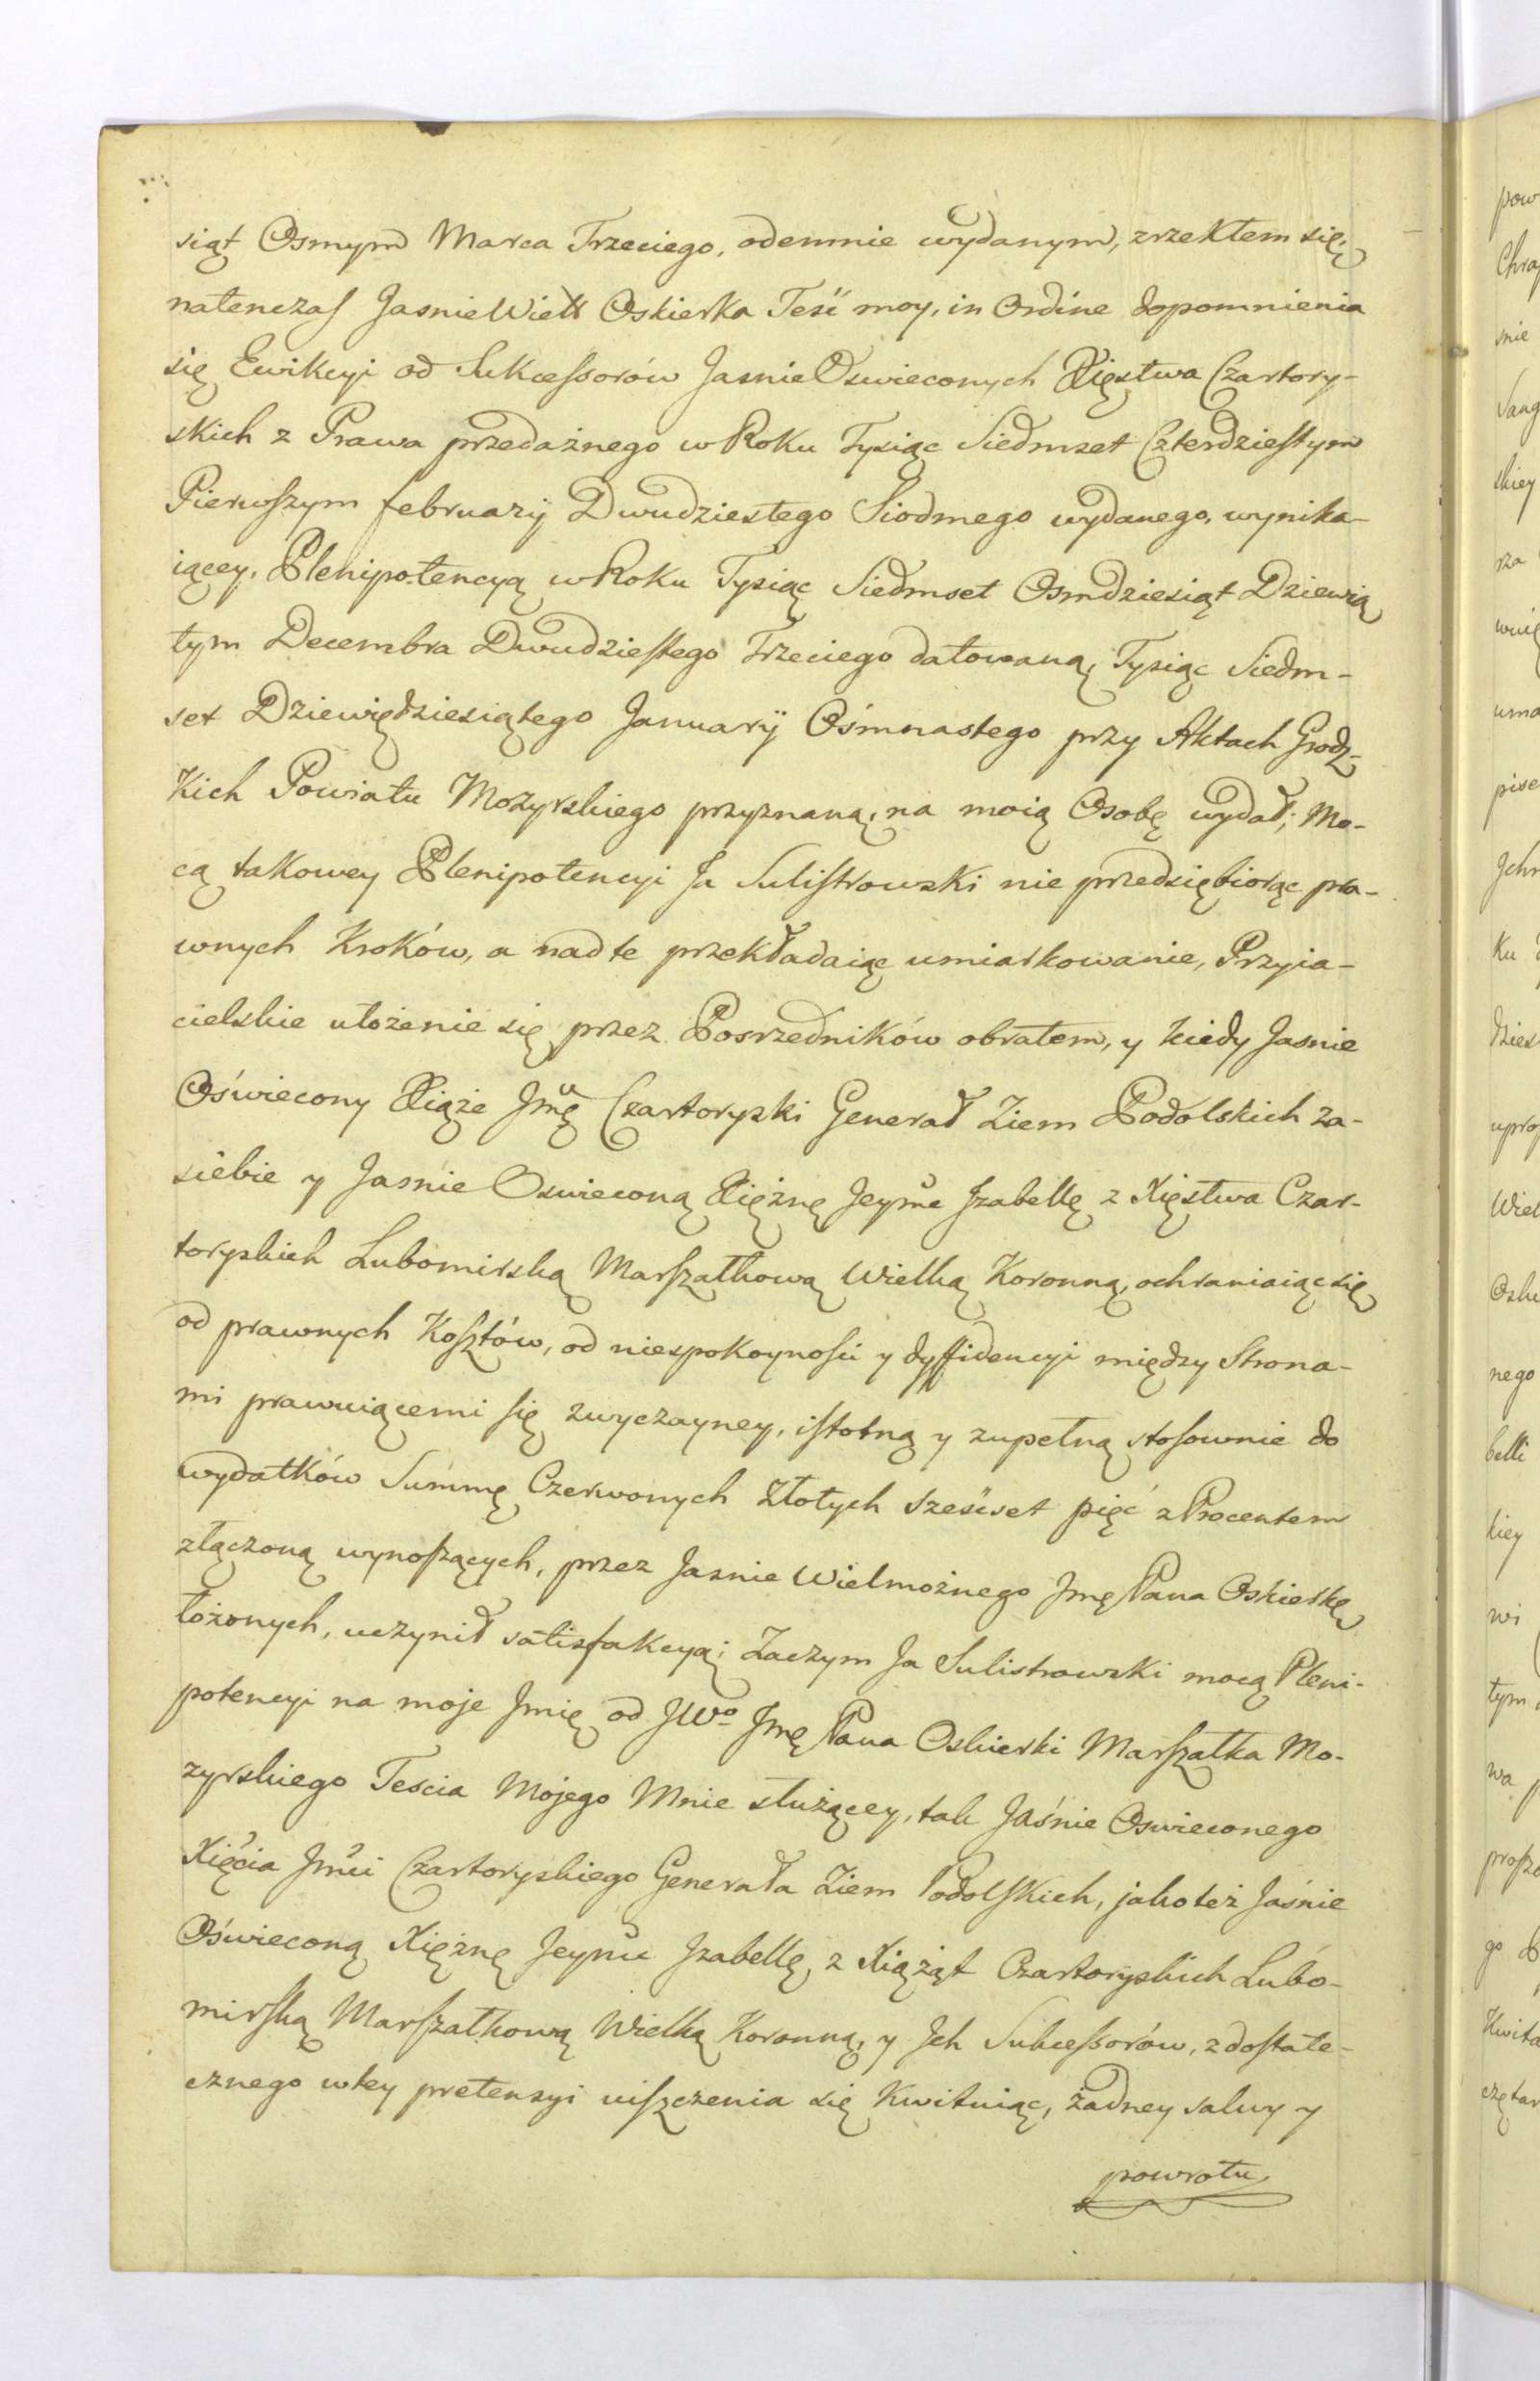 siąt Osmym Marca Trzeciego, odemnie wydanym, zrzekłem się,
natenczas JasnieWielł Oskierka Teść moy, in Ordine dopomnienia
się Ewikcyi od Sukcessorów JasnieOswieconych Xięstwa Czartory-
skich z Prawa przedażnego w Roku Tysiąc Siedmset Czterdziestym
Pierwszym february Dwudziestego Siodmego wydanego, wynika-
iącey, Plenipotencyą w Roku Tysiąc Siedmset Osmdziesiąt Dziewią
tym Decembra Dwudziestego Trzeciego datowaną, Tysiąc Siedm-
set Dziewiędziesiątego January Ośmnastego przy Aktach Grodz-
kich Powiatu Mozyrskiego przyznaną, na moią Osobę wydał; Mo-
cą takowey Plenipotencyi Ja Sulistrowski nie przedsiębiorąc pra-
wnych Kroków, a nad te przekładaiąc umiarkowanie, Przyia-
cielskie ułożenie się przez Posrzedników obrałem, y kiedy Jasnie
Oświecony Xiąże Jmć Czartoryski Generał Ziem Podolskich za-
siebie y Jasnie Oswieconą Xiężnę Jeymć Izabellę z Xięstwa Czar-
toryskich Lubomirską Marszałkową Wielką Koronną, ochraniaiąc się
od prawnych Kosztów, od niespokoyności y dyffidencyi między Strona-
mi prawuiącemi się zwyczayney, istotną y zupełną stosownie do
wydatków Summę Czerwonych Złotych sześćset pięć z Procentem
złączoną wynoszących, przez Jasnie Wielmożnego Jmę Pana Oskierkę
łożonych, uczynił satisfakcyą; Zaczym Ja Sulistrowski mocą Pleni-
potencyi na moje Jmię od JWo Jmę Pana Oskierki Marszałka Mo-
zyrskiego Teścia Mojego Mnie służącey, tak Jaśnie Oswieconego
Xięcia Jmći Czartoryskiego Generała Ziem Podolskich, jako też Jaśnie
Oświeconą Xiężnę Jeymć Izabellę z Xiążąt Czartoryskich Lubo-
mirską Marszałkową Wielką Koronną, y Jch Sukcessorów, z dostate-
cznego w tey pretensyi uiszczenia się Kwituiąc, żadney salwy y
powrotu